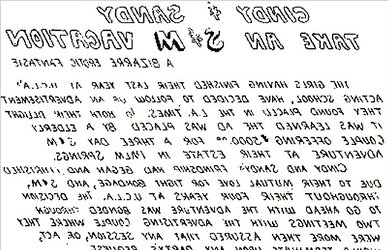 CINDY & SANDY
TAKE AN S&M VACATION
A BIZARRE EROTIC FANTASIE
THE GIRLS HAVING FINISHED THEIR LAST YEAR AT U.C.L.A.
ACTING SCHOOL, HAVE DECIDED TO FOLLOW UP AN ADVERTISEMENT
THEY FOUND PLACED IN THE L.A. TIMES. BOTH THEIR
IT WAS LEARNED THE AD WAS PLACED BY A ELDERLY
COUPLE OFFERING $2000.00 FOR A THREE DAY S&M
ADVENTURE AT THEIR ESTATE IN PALM SPRINGS.
CINDY AND SANDYS FRIENDSHIP HAD BEGAN AND
DUE TO THEIR MUTUAL LOVE FOR TIGHT BONDAGE, AND S&M,
THROUGHOUT THEIR FOUR YEARS AT U.C.L.A. THE DECISION
TO GO AHEAD WITH THE ADVENTURE WAS BONDED THROUGH
TWO MEETINGS WITH THE ADVERTISING COUPLE WHERE THEY
WERE MORE THEN ASSURED THAT ANY SESSION, OR ACT,
UPON ANY PARTYS REQUEST